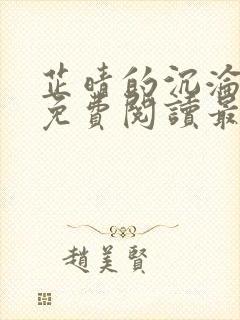 芷晴的沉淪
免費閱讀最
趙美賢